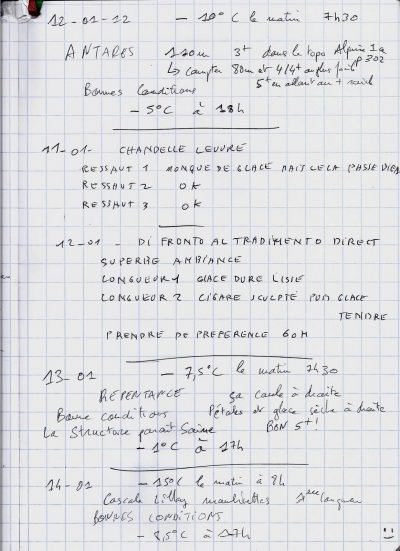 12-01-12 - 10°C le matin 7h30
ANTARES 120m 3+ dans le topo Alpine Ice
↳ compter 80m et 4/4+ au plus facile p 302
Bonnes conditions 5+ en allant au + raide
- 5°C à 18h
11-01- CHANDELLE LEUVRE
RESSAUT 1 MONQUE DE GLACE MAIS CELA PASSE BIEN
RESSAUT 2 OK
RESSAUT 3 OK
12-01 - DI FRONTO AL TRADIMENTO DIRECT
SUPERBE AMBIANCE
LONGUEUR 1 GLACE DURE LISSE
LONGUEUR 2 CIGARE SCULPTÉ PUIS GLACE
TENDRE
PRENDRE DE PREFERENCE 60M
13-01 - 7,5°C le matin 7h30
REPENTANCE ça coule à droite
Bonne conditions Pétales et glace sèche à droite
La Structure parait Saine BON 5+!
- 1°C à 17h
14-01 - 15°C le matin à 8h
Cascade Lillaz 1ère longueur
BONNES CONDITIONS
- 8,5°C à 17h